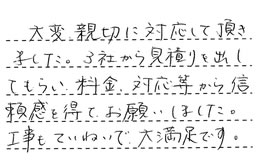 大変親切に対応して頂き
ました。3社から見積りを出し
てもらい料金、対応等から信
頼感を得て、お願いしました。
工事もていねいで大満足です。